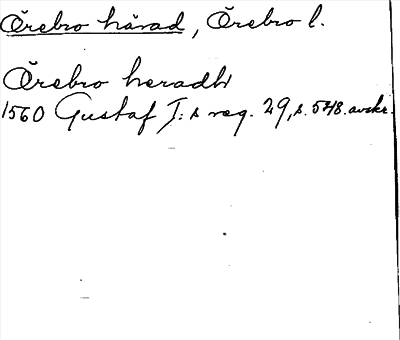 Örebro härad, Örebro l.
Örebro heradh
1560 Gustaf I:s reg. 29, s. 548. avskr.